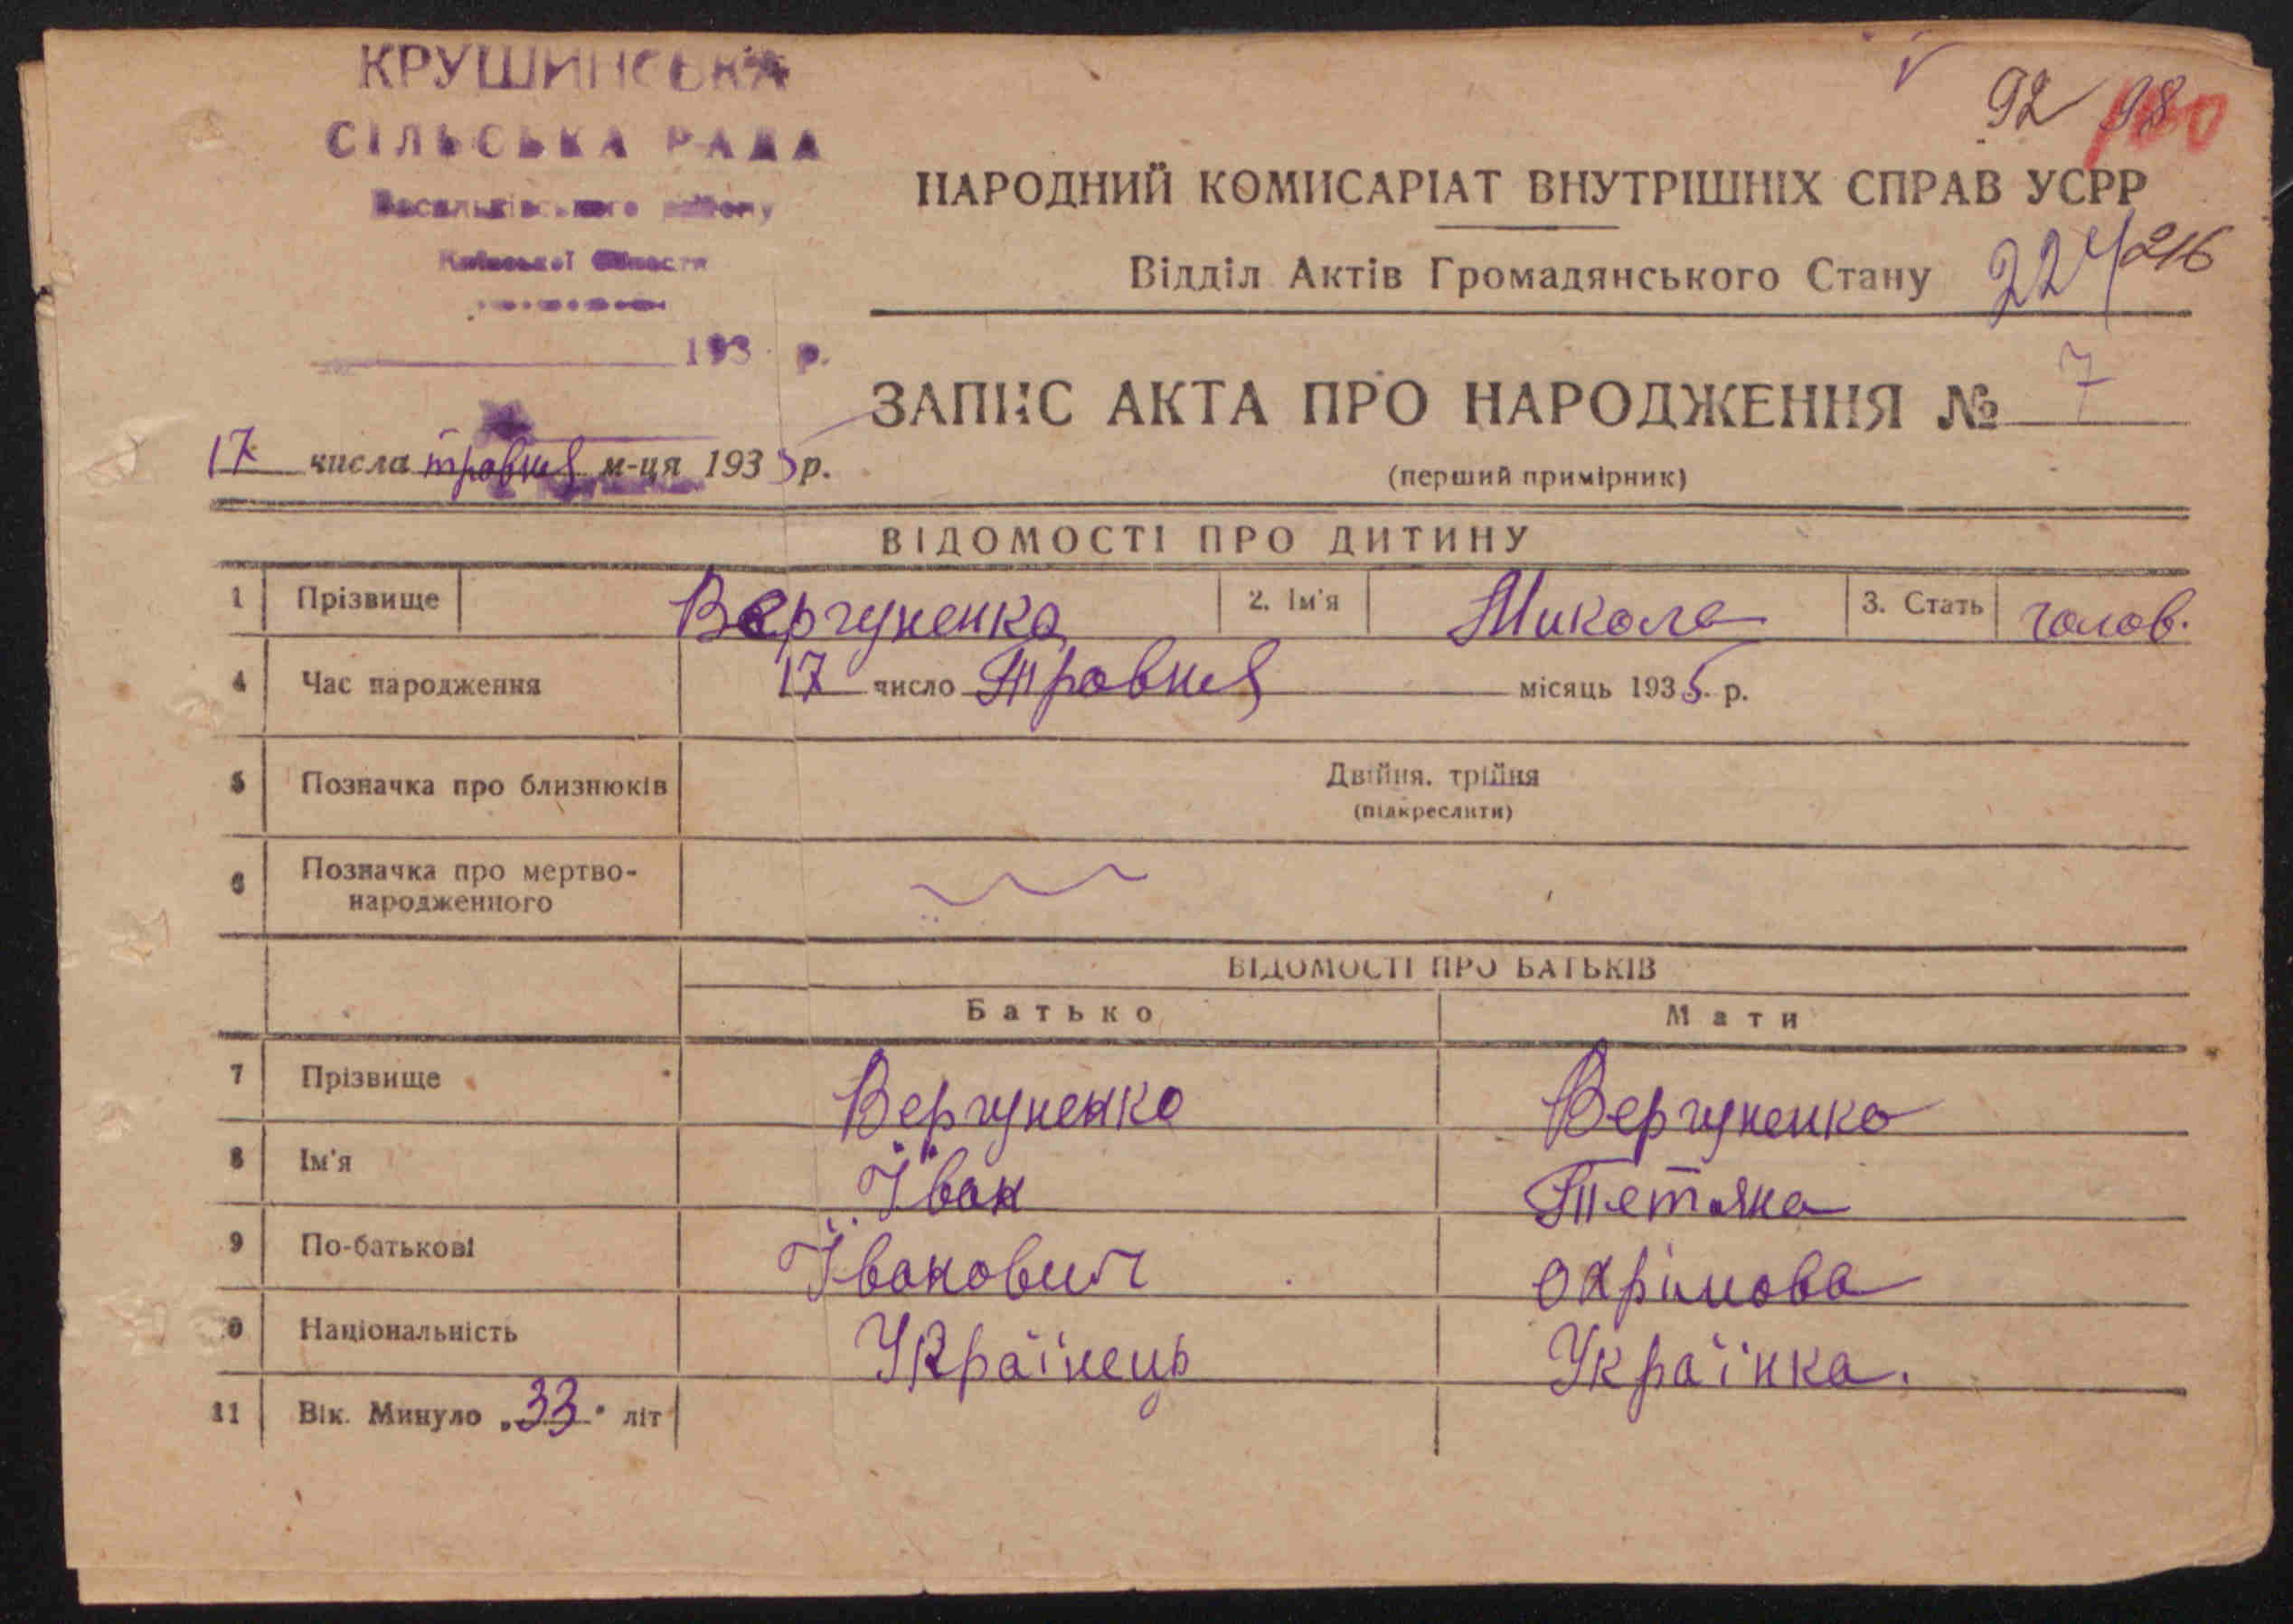 КРУШИНСЬКА
СІЛЬСЬКА РАДА
Васильківського району
Київської Области
193 р.
92 98 100
НАРОДНИЙ КОМИСАРІАТ ВНУТРІШНІХ СПРАВ УСРР
Відділ Актів Громадянського Стану 224 216
ЗАПИС АКТА ПРО НАРОДЖЕННЯ № 7
(перший примірник)
17 числа травня м-ця 1935 р.
ВІДОМОСТІ ПРО ДИТИНУ
1 Прізвище Вергуненко 2. Ім'я Микола 3. Стать чолов.
4 Час народження 17 число Травня місяць 1935 р.
5 Позначка про близнюків Двійня, трійня
(підкреслити)
6 Позначка про мертво-
народженного
ВІДОМОСТІ ПРО БАТЬКІВ
Батько Мати
7 Прізвище Вергуненко Вергуненко
8 Ім'я Іван Тетяна
9 По-батькові Іванович Охрімова
10 Національність Українець Українка.
11 Вік. Минуло „33" літ